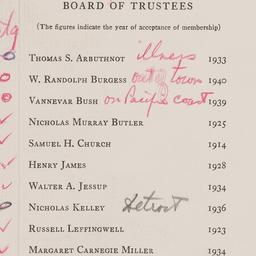 BOARD OF TRUSTEES
(The figures indicate the year of acceptance of membership)
THOMAS S. ARBUTHNOT illness 1933
W. RANDOLPH BURGESS out of town 1940
VANNEVAR BUSH on Pacific coast 1939
NICHOLAS MURRAY BUTLER 1925
SAMUEL H. CHURCH 1914
HENRY JAMES 1928
WALTER A. JESSUP 1934
NICHOLAS KELLEY Detroit 1936
RUSSELL LEFFINGWELL 1923
MARGARET CARNEGIE MILLER 1934